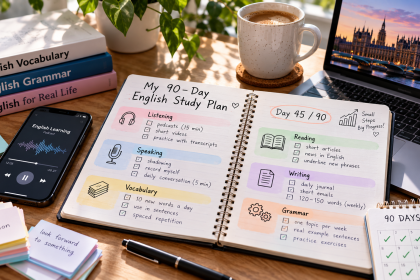 English Vocabulary
English Grammar
English for Real Life
English Learning
My 90-Day
English Study Plan
Listening
podcasts (15 min)
short videos
practice with transcripts
Speaking
shadowing
record myself
daily conversation (5 min)
Vocabulary
10 new words a day
use in sentences
spaced repetition
Day 45 / 90
Small
Steps
Big
Progress!
Reading
short articles
news in English
underline new phrases
Writing
daily journal
short emails
120-150 words (weekly)
Grammar
one topic per week
real example sentences
practice exercises
look forward
to something
90 DAYS